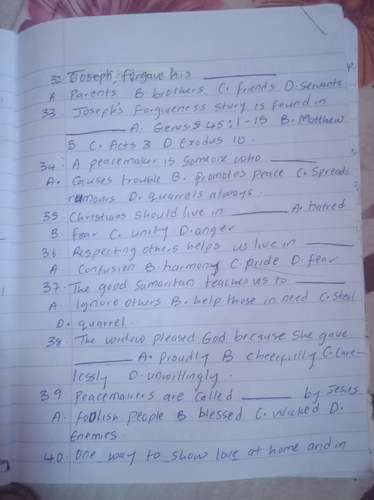 32. Joseph forgave his ________
A. Parents B. brothers C. friends D. Servants
33. Joseph's Forgiveness story is found in
________ A. Genesis 45:1-15 B. Matthew
5 C. Acts 3 D Exodus 10.
34. A peacemaker is someone who ________
A. Causes trouble B. promotes peace C. Spreads
rumours D. quarrels always.
35 Christians should live in ________ A. hatred
B. fear C. unity D. anger
36. Respecting others helps us live in ________
A. Confusion B. harmony C. pride D. fear
37. The good Samaritan teaches us to ________
A. Ignore others B. help those in need C. steal
D. quarrel.
38. The widow pleased God because she gave
________ A. Proudly B cheerfully C. Care-
lessly D. unwillingly.
39 Peacemakers are called ________ by Jesus
A. foolish people B. blessed C. wicked D.
Enemies.
40. One way to show love at home and in